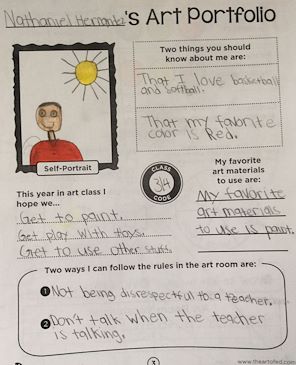 Nathaniel 's Art Portfolio
Two things you should
know about me are:
That I love basketball
and softball.
That my favorite
color is Red.
Self-Portrait
CLASS
3/4
CODE
My favorite
art materials
to use are:
My favorite
art materials
to use is paint.
This year in art class I
hope we...
Get to paint.
Get play with
Get to use other
Two ways I can follow the rules in the art room are:
1 Not being disrespectful to a teacher.
2 Don't talk when the teacher
is talking.
3
www.theartofed.com